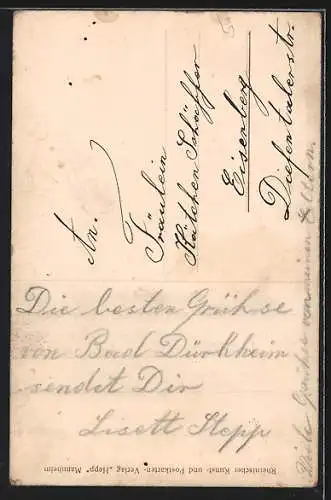 An.
Fräulein
Kätchen Schäffer
Eisenberg
Diefentalerstr.
Die besten Grühse
von Bad Dürkheim
sendet Dir
Lisett Stepp
Viele Grühse von meinen Eltern.
Rheinischer Kunst- und Postkarten-Verlag „Hepp" Mannheim